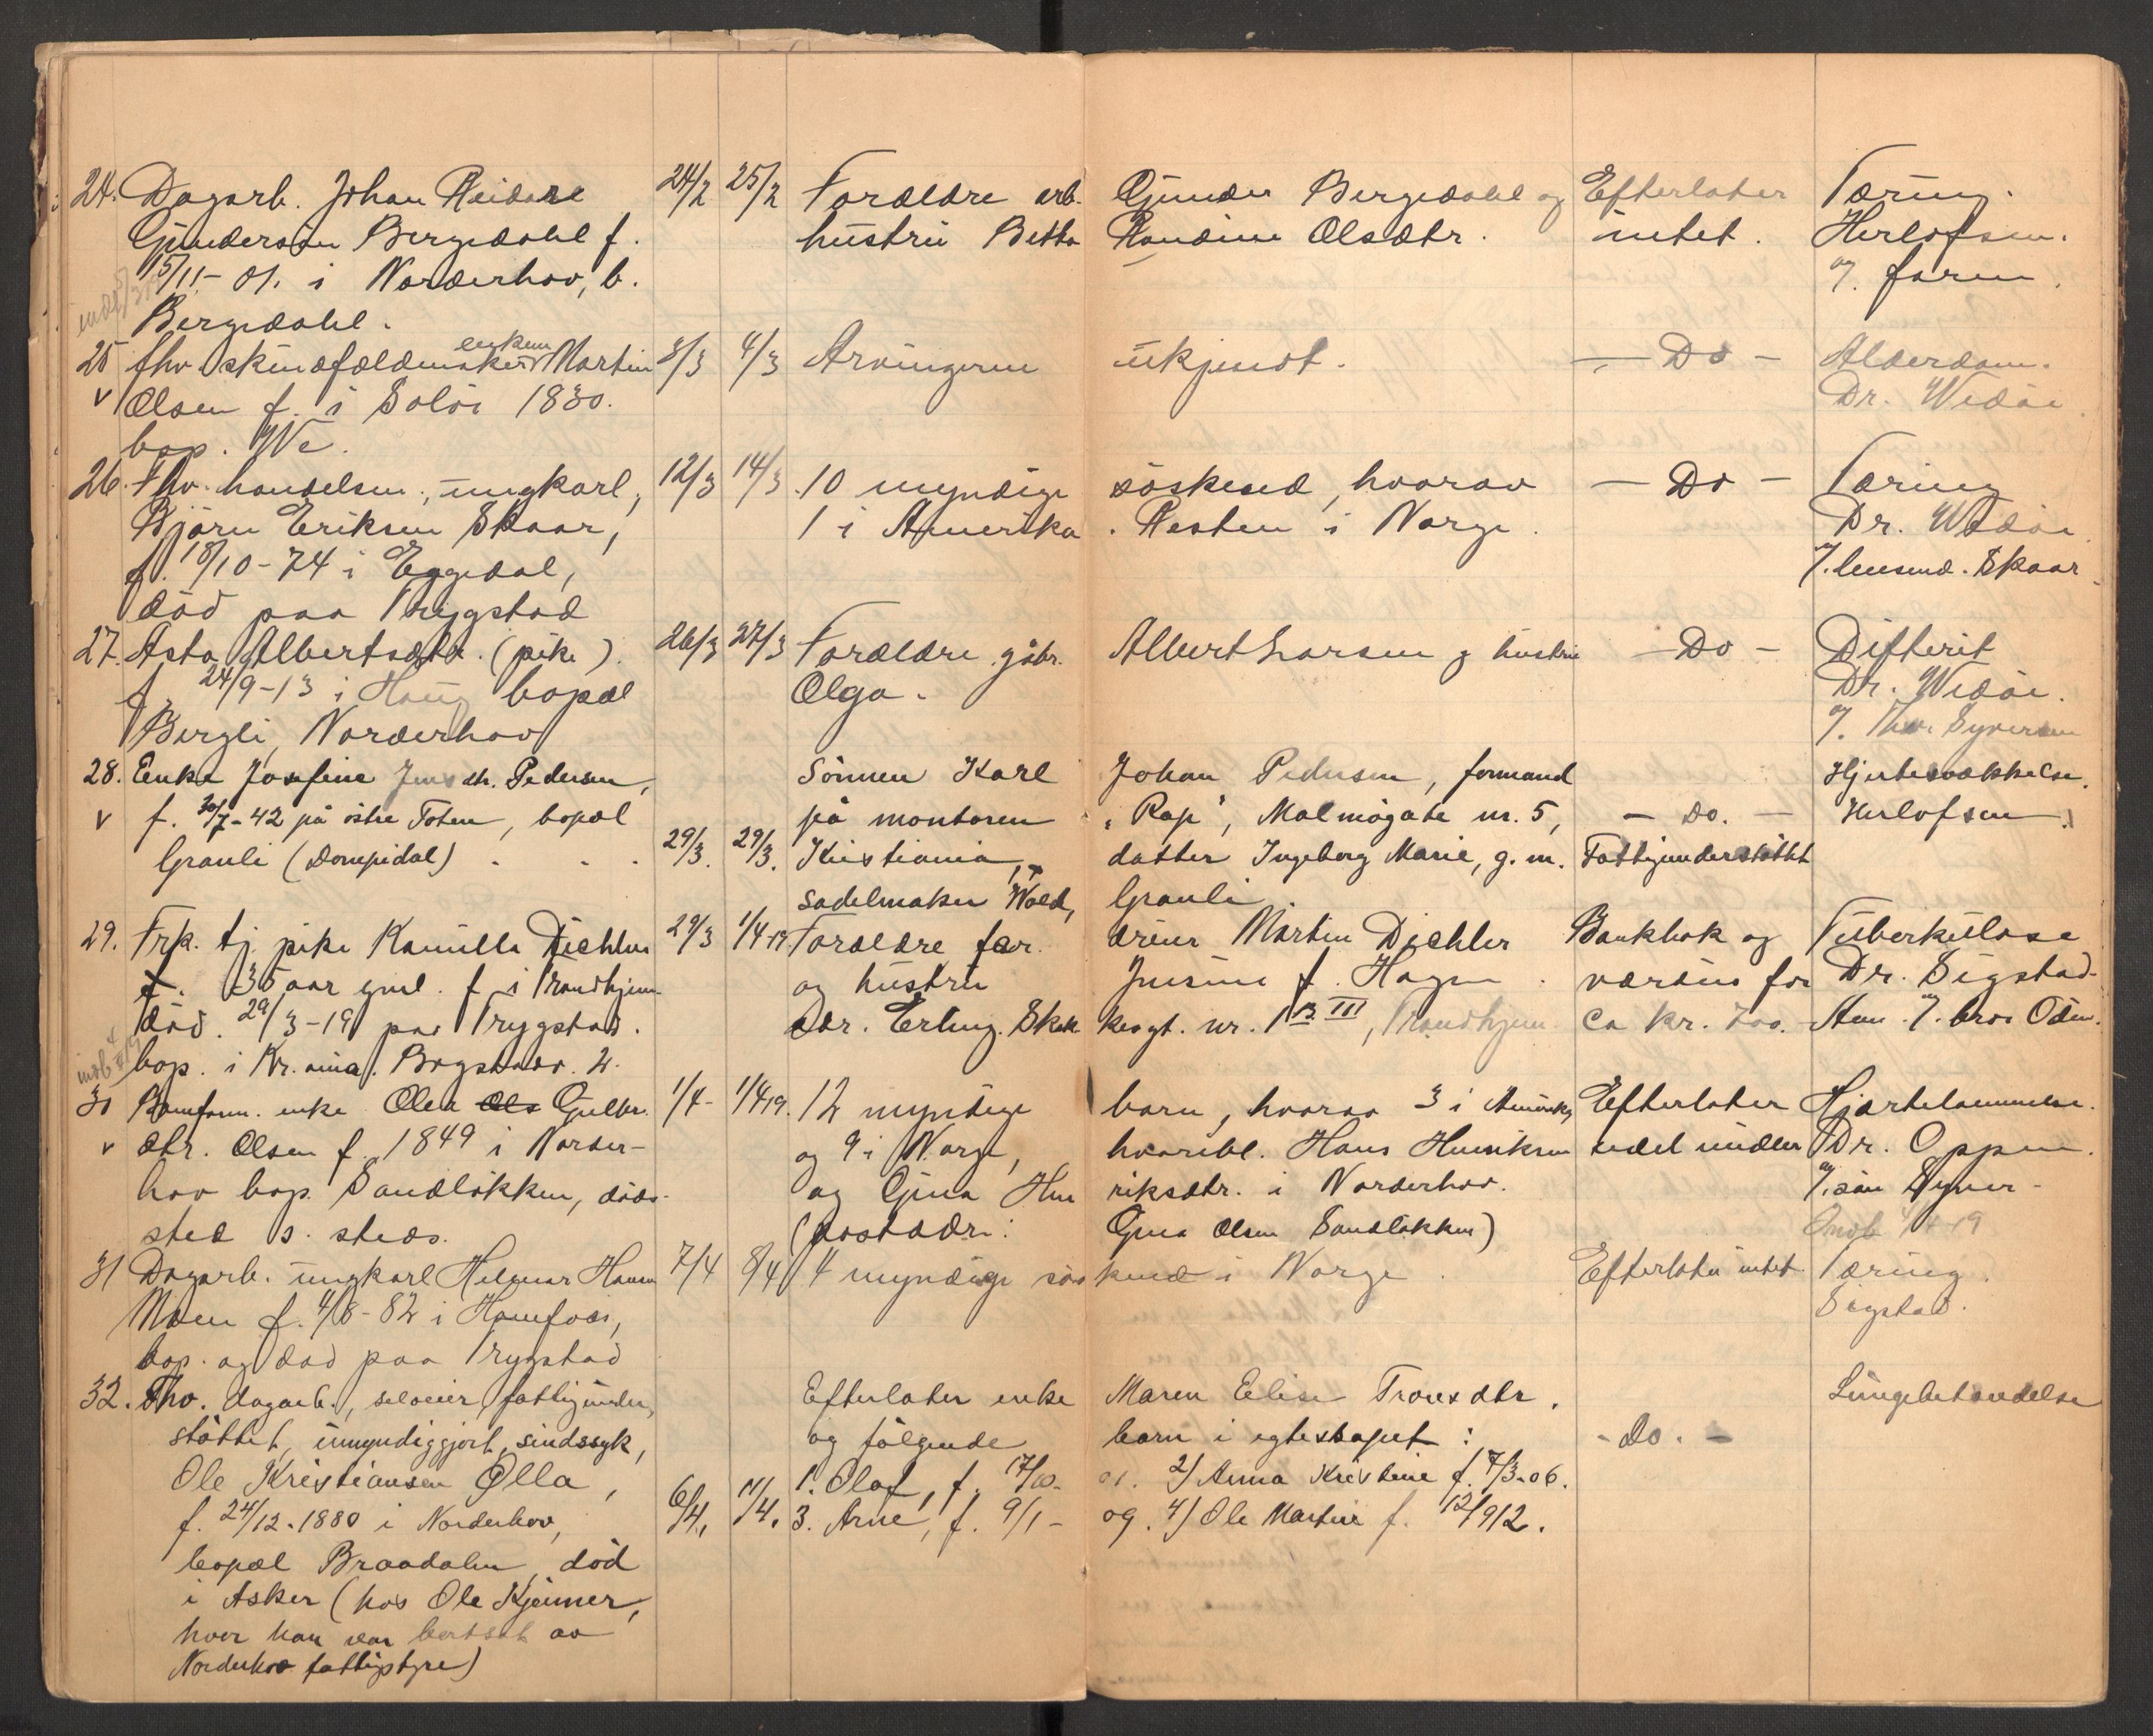 24. Dagarb. Johan Reidare 24/2 25/2 Forældre arb. Gunder Bergedahl og Efterlater Tæring.
Gundersøn Bergedahl f. hustru Betha Randine Olsdtr. intet. Herlofsen.
15/11-01. i Norderhov, b. v. faren.
Bergedahl.
25 fhv. skindfældmaker enkem. Martin 3/3 4/3 Arvingerne ukjendt. — Do — Alderdom.
v Olsen f. i Solør 1830. Dr. Wedøe
bop. We.
26. Fhv. handelsm., ungkarl, 12/3 14/3 10 myndige søskend, hvorav — Do — Tæring
Bjørn Eriksen Skaar, 1 i Amerika. Resten i Norge. Dr. Wedøe
f. 18/10-74 i Eggedal, v. lensmd. Skaar
død paa Trygstad
27. Asta Albertsdtr. (pike). 26/3 27/3 Forældre gbr. Albert Larsen og hustru — Do — Difterit
f. 24/9-13 i Haug bopæl Olga. Dr. Wedøe.
Bergli, Norderhov v. Syversen
28. Enke Josefine Jensdtr. Pedersen, Sönnen Karl Johan Pedersen, formand Hjertesvækkelse.
v f. 30/7-42 på östre Toten, bopæl på montoren „Rap“, Malmögate nr. 5, — Do. — Herlofsen.
Grauli (Dompidal) . . . 29/3. 29/3. Kristiania, datter Ingeborg Marie, g. m. Fattigunderstöttet
sadelmaker Wold, Grauli
29. Frk. tj. pike Kamilla Dichler 29/3 1/4-19. Forældre Martin Dichler Bankbok og Tuberkulose
f. 35 aar gml. f. i Trondhjem og hustru f. Hagen. for Dr. Sigstad
død. 29/3-19 paa Trygstad. Erling Skak kesgt. nr. 1 B III, Trondhjem ca kr. 700.
bop. i Kr.ania. Bogstadv. 2.
30 enke Olea Ols Gulbr. 1/4- 1/4 19. 12 myndige barn, hvorav 3 i Amerika, Efterlater Hjærtelammelse.
v dtr. Olsen f. 1849 i Norder- og 9 i Norge, hvoribl. Hans Henriksen endel midler Dr. Oppen.
hov bop. Sandløkken, døds- og Gina Hen riksdtr. i Norderhov. v. søn Syver
sted s. steds. (postadr.: Gina Olsen Sandløkken) 19
31 Dagarb. ungkarl Helmar Hansen 7/4 8/4 4 myndige søs kend i Norge. Efterlater intet Tæring.
Moen f. 4/8-82 i Sigstad.
bop. og død paa Trygstad
32. Fhv. dagarb., selveier, fattigunder- Efterlater enke Maren Elise Tronsdtr. Lungebetændelse
støttet, umyndiggjort, sindssyk, og følgende barn i egteskapet: - do. -
Ole Kristiansen Ølla, 1. Olaf, f. 17/10- 01. 2) Anna Kristine f. 7/3-06.
f. 24/12-1880 i Norderhov, 6/4. 11/4. 3. Arne, f. 9/1- 09. 4) Ole Martin f. 12/9 12.
bopæl Braadalen, død
i Asker (hos Ole Kjeimer,
hvor han var bortsat av
Norderhov fattigstyre)